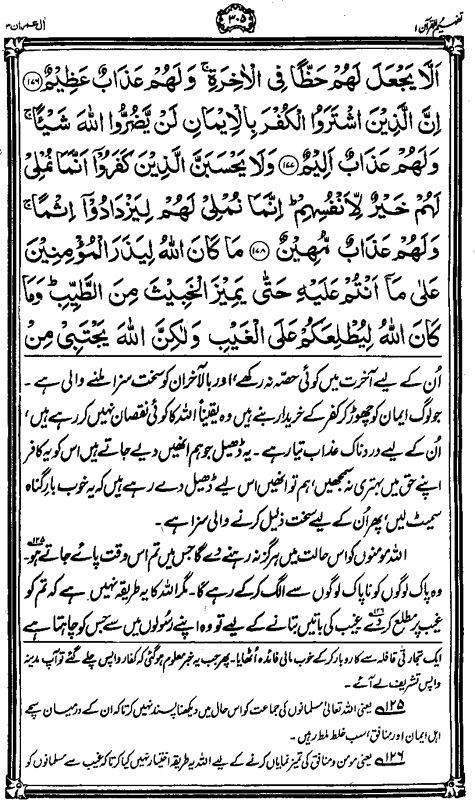 تفہیم القرآن ۱
۳۰۵
اٰل عمران ۳
اَلَّا يَجْعَلَ لَهُمْ حَظًّا فِى الْاٰخِرَةِ ۚ وَلَهُمْ عَذَابٌ عَظِيْمٌ ﴿۱۷۶﴾
اِنَّ الَّذِيْنَ اشْتَرَوُا الْكُفْرَ بِالْاِيْمَانِ لَنْ يَّضُرُّوا اللّٰهَ شَيْئًا ۚ
وَلَهُمْ عَذَابٌ اَلِيْمٌ ﴿۱۷۷﴾ وَلَا يَحْسَبَنَّ الَّذِيْنَ كَفَرُوْٓا اَنَّمَا نُمْلِىْ
لَهُمْ خَيْرٌ لِّاَنْفُسِهِمْ ؕ اِنَّمَا نُمْلِىْ لَهُمْ لِيَزْدَادُوْٓا اِثْمًا ۚ
وَلَهُمْ عَذَابٌ مُّهِيْنٌ ﴿۱۷۸﴾ مَا كَانَ اللّٰهُ لِيَذَرَ الْمُؤْمِنِيْنَ
عَلٰى مَآ اَنْتُمْ عَلَيْهِ حَتّٰى يَمِيْزَ الْخَبِيْثَ مِنَ الطَّيِّبِ ؕ وَمَا
كَانَ اللّٰهُ لِيُطْلِعَكُمْ عَلَى الْغَيْبِ وَلٰكِنَّ اللّٰهَ يَجْتَبِىْ مِنْ
اُن کے لیے آخرت میں کوئی حصّہ نہ رکھے، اور بالآخر ان کو سخت سزا ملنے والی ہے۔
جو لوگ ایمان کو چھوڑ کر کفر کے خریدار بنے ہیں وہ یقیناً اللہ کا کوئی نقصان نہیں کر رہے ہیں،
اُن کے لیے دردناک عذاب تیار ہے۔ یہ ڈھیل جو ہم انھیں دیے جاتے ہیں اس کو یہ کافر
اپنے حق میں بہتری نہ سمجھیں، ہم تو انھیں اس لیے ڈھیل دے رہے ہیں کہ یہ خوب بارِ گناہ
سمیٹ لیں، پھر اُن کے لیے سخت ذلیل کرنے والی سزا ہے۔
اللہ مومنوں کو اس حالت میں ہرگز نہ رہنے دے گا جس میں تم اس وقت پائے جاتے ہو۔۱۲۵
وہ پاک لوگوں کو ناپاک لوگوں سے الگ کر کے رہے گا۔ مگر اللہ کا یہ طریقہ نہیں ہے کہ تم کو
غیب پر مطلع کر دے۱۲۶۔ غیب کی باتیں بتانے کے لیے تو وہ اپنے رسُولوں میں سے جس کو چاہتا ہے
ایک تجارتی قافلہ سے کاروبار کر کے خوب مالی فائدہ اُٹھایا۔ پھر جب یہ خبر معلوم ہوگئی کہ کفار واپس چلے گئے تو آپ مدینہ
واپس تشریف لے آئے۔
۱۲۵ یعنی اللہ تعالیٰ مسلمانوں کی جماعت کو اس حال میں دیکھنا پسند نہیں کرتا کہ ان کے درمیان سچے
اہل ایمان اور منافق، سب خلط ملط رہیں۔
۱۲۶ یعنی مومن و منافق کی تمیز نمایاں کرنے کے لیے اللہ یہ طریقہ اختیار نہیں کیا کرتا کہ غیب سے مسلمانوں کو